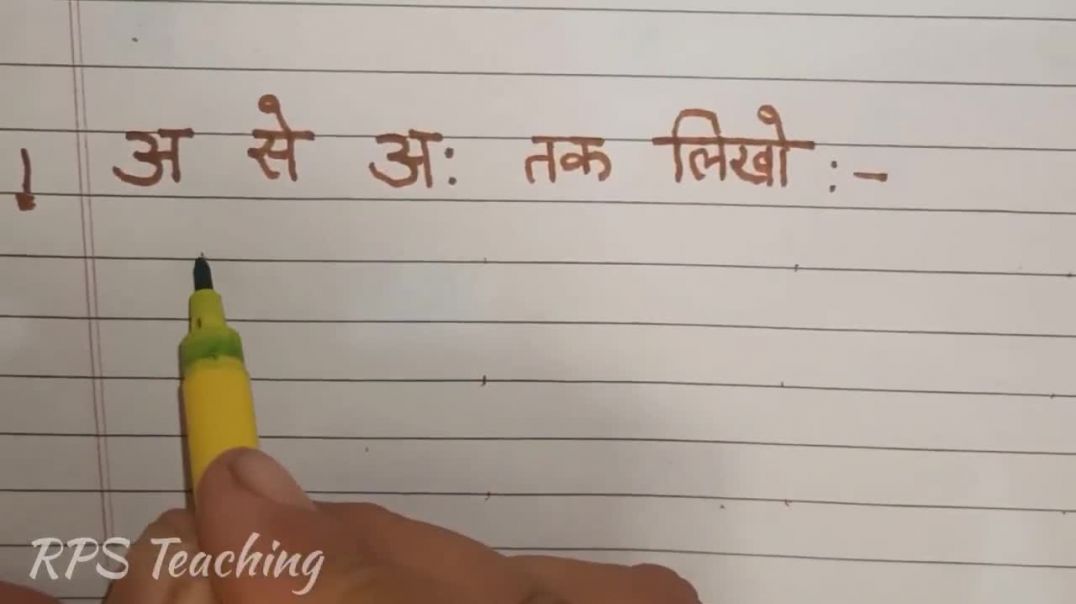 1. अ से अः तक लिखो :-
RPS Teaching